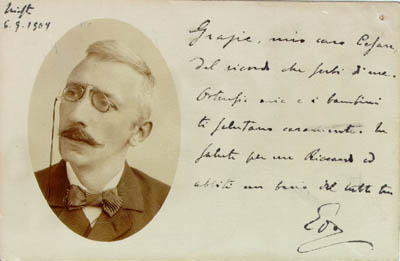 6.9.1904
Grazie, mio caro Cesare,
del ricordo che serbi di me.
mia e i bambini
ti salutano caramente. Tu
saluta per me Riccardo ed
abbiti un bacio del tutto tuo